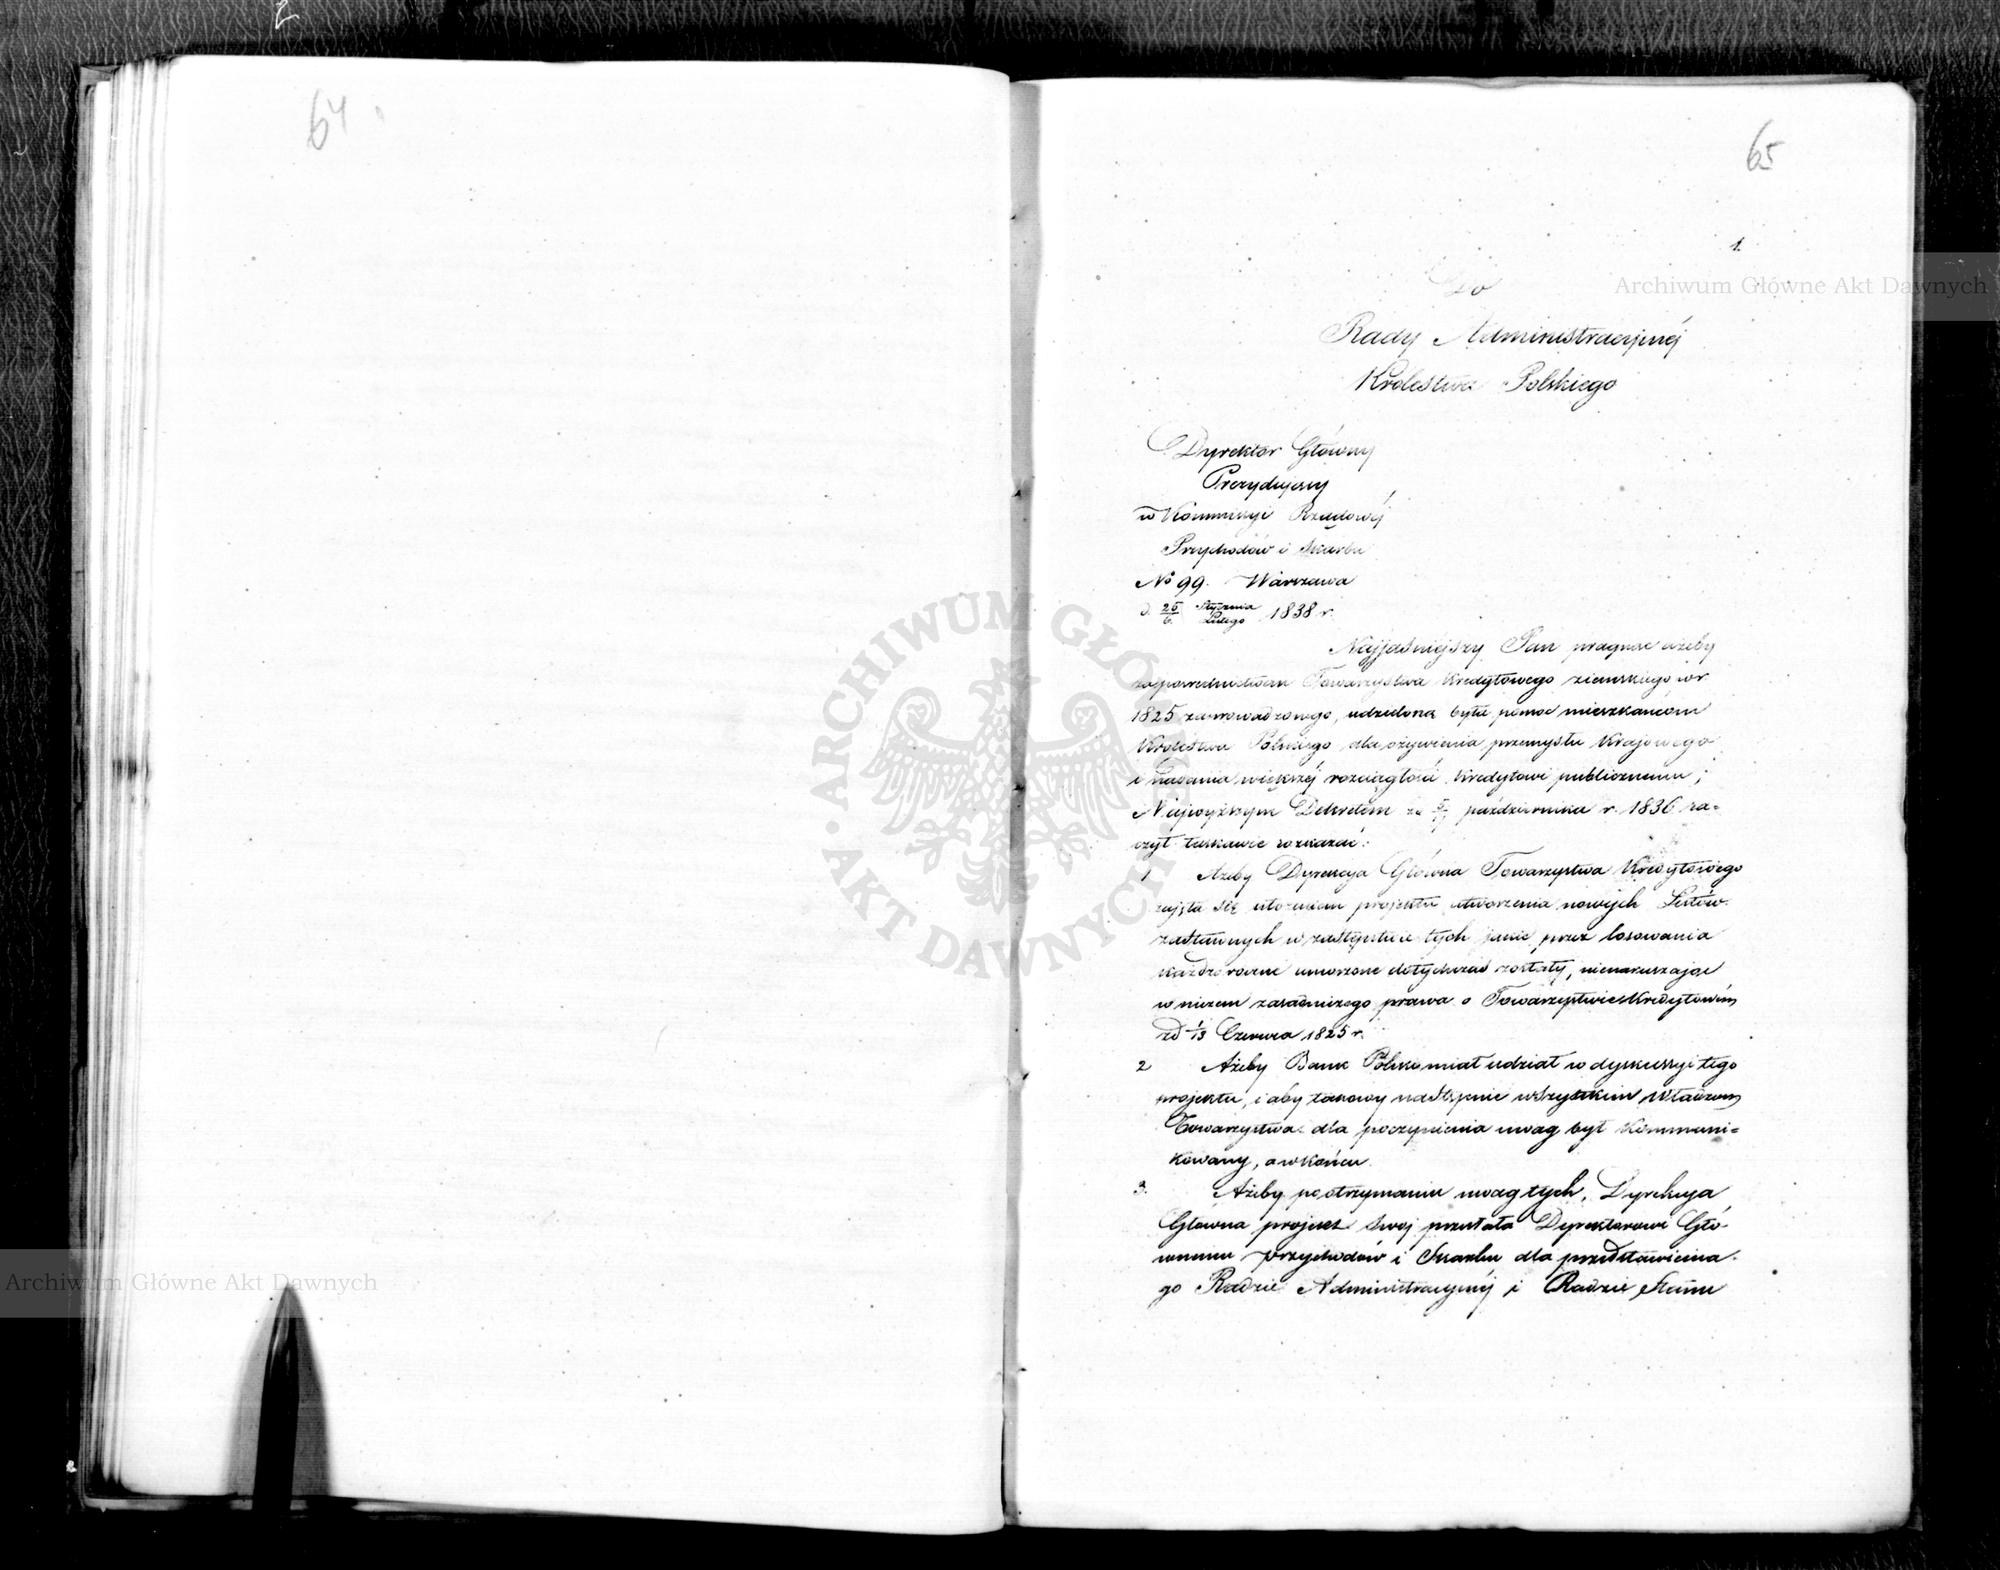 2
64
65
1.
Do
Rady Administracyjnéj
Królestwa Polskiego
Dyrektor Główny
Prezydujący
w Kommissyi Rządowéj
Przychodów i Skarbu
№ 99. Warszawa
d. 25/6. Stycznia/Lutego 1838 r.
Najjaśniejszy Pan pragnąc ażeby
za pośrednictwem Towarzystwa Kredytowego ziemskiego w r.
1825 zaprowadzonego, udzielona była pomoc mieszkańcom
Królestwa Polskiego dla ożywienia przemysłu Krajowego
i nadania większéj rozciągłości Kredytowi publicznemu;
Najwyższym Dekretem październıka r. 1836 ra=
czył łaskawie rozkazać:
1 Ażeby Dyrekcya Główna Towarzystwa Kredytowego
zajęła się ułożeniem projektu utworzenia nowych Listów
zastawnych w zastępstwie tych jakie przez losowania
każdorocznie umorzone dotychczas zostały, nienaruszając
w niczem zasadniczego prawa o Towarzystwie Kredytowém
z d 1/13 Czerwca 1825 r.
2 Ażeby Bank Polski miał udział w dyskussyi tego
projektu, i aby takowy następnie wszystkim Władzom
Towarzystwa dla poczynienia uwag był Kommuni=
kowany, a w końcu
3. Ażeby po otrzymaniu uwag tych, Dyrekcya
Główna projekt swój przesłała Dyrektorowi Głó-
wnemu Przychodów i Skarbu dla przedstawienia
go Radzie Administracyjnéj i Radzie Stanu
Archiwum Główne Akt Dawnych
Archiwum Główne Akt Dawnych
ARCHIWUM GŁÓWNE AKT DAWNYCH